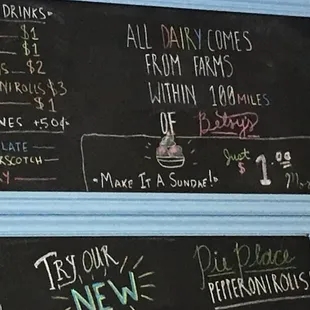 DRINKS
$1
$1
$2
NI ROLLS $3
$1
NES +50¢
LATE
RSCOTCH
ALL DAIRY COMES
FROM FARMS
WITHIN 100 MILES
OF Betsy's
Just
$1.00
"MAKE IT A SUNDAE!"
TRY OUR
NEW
Pie Place
PEPPERONI ROLLS